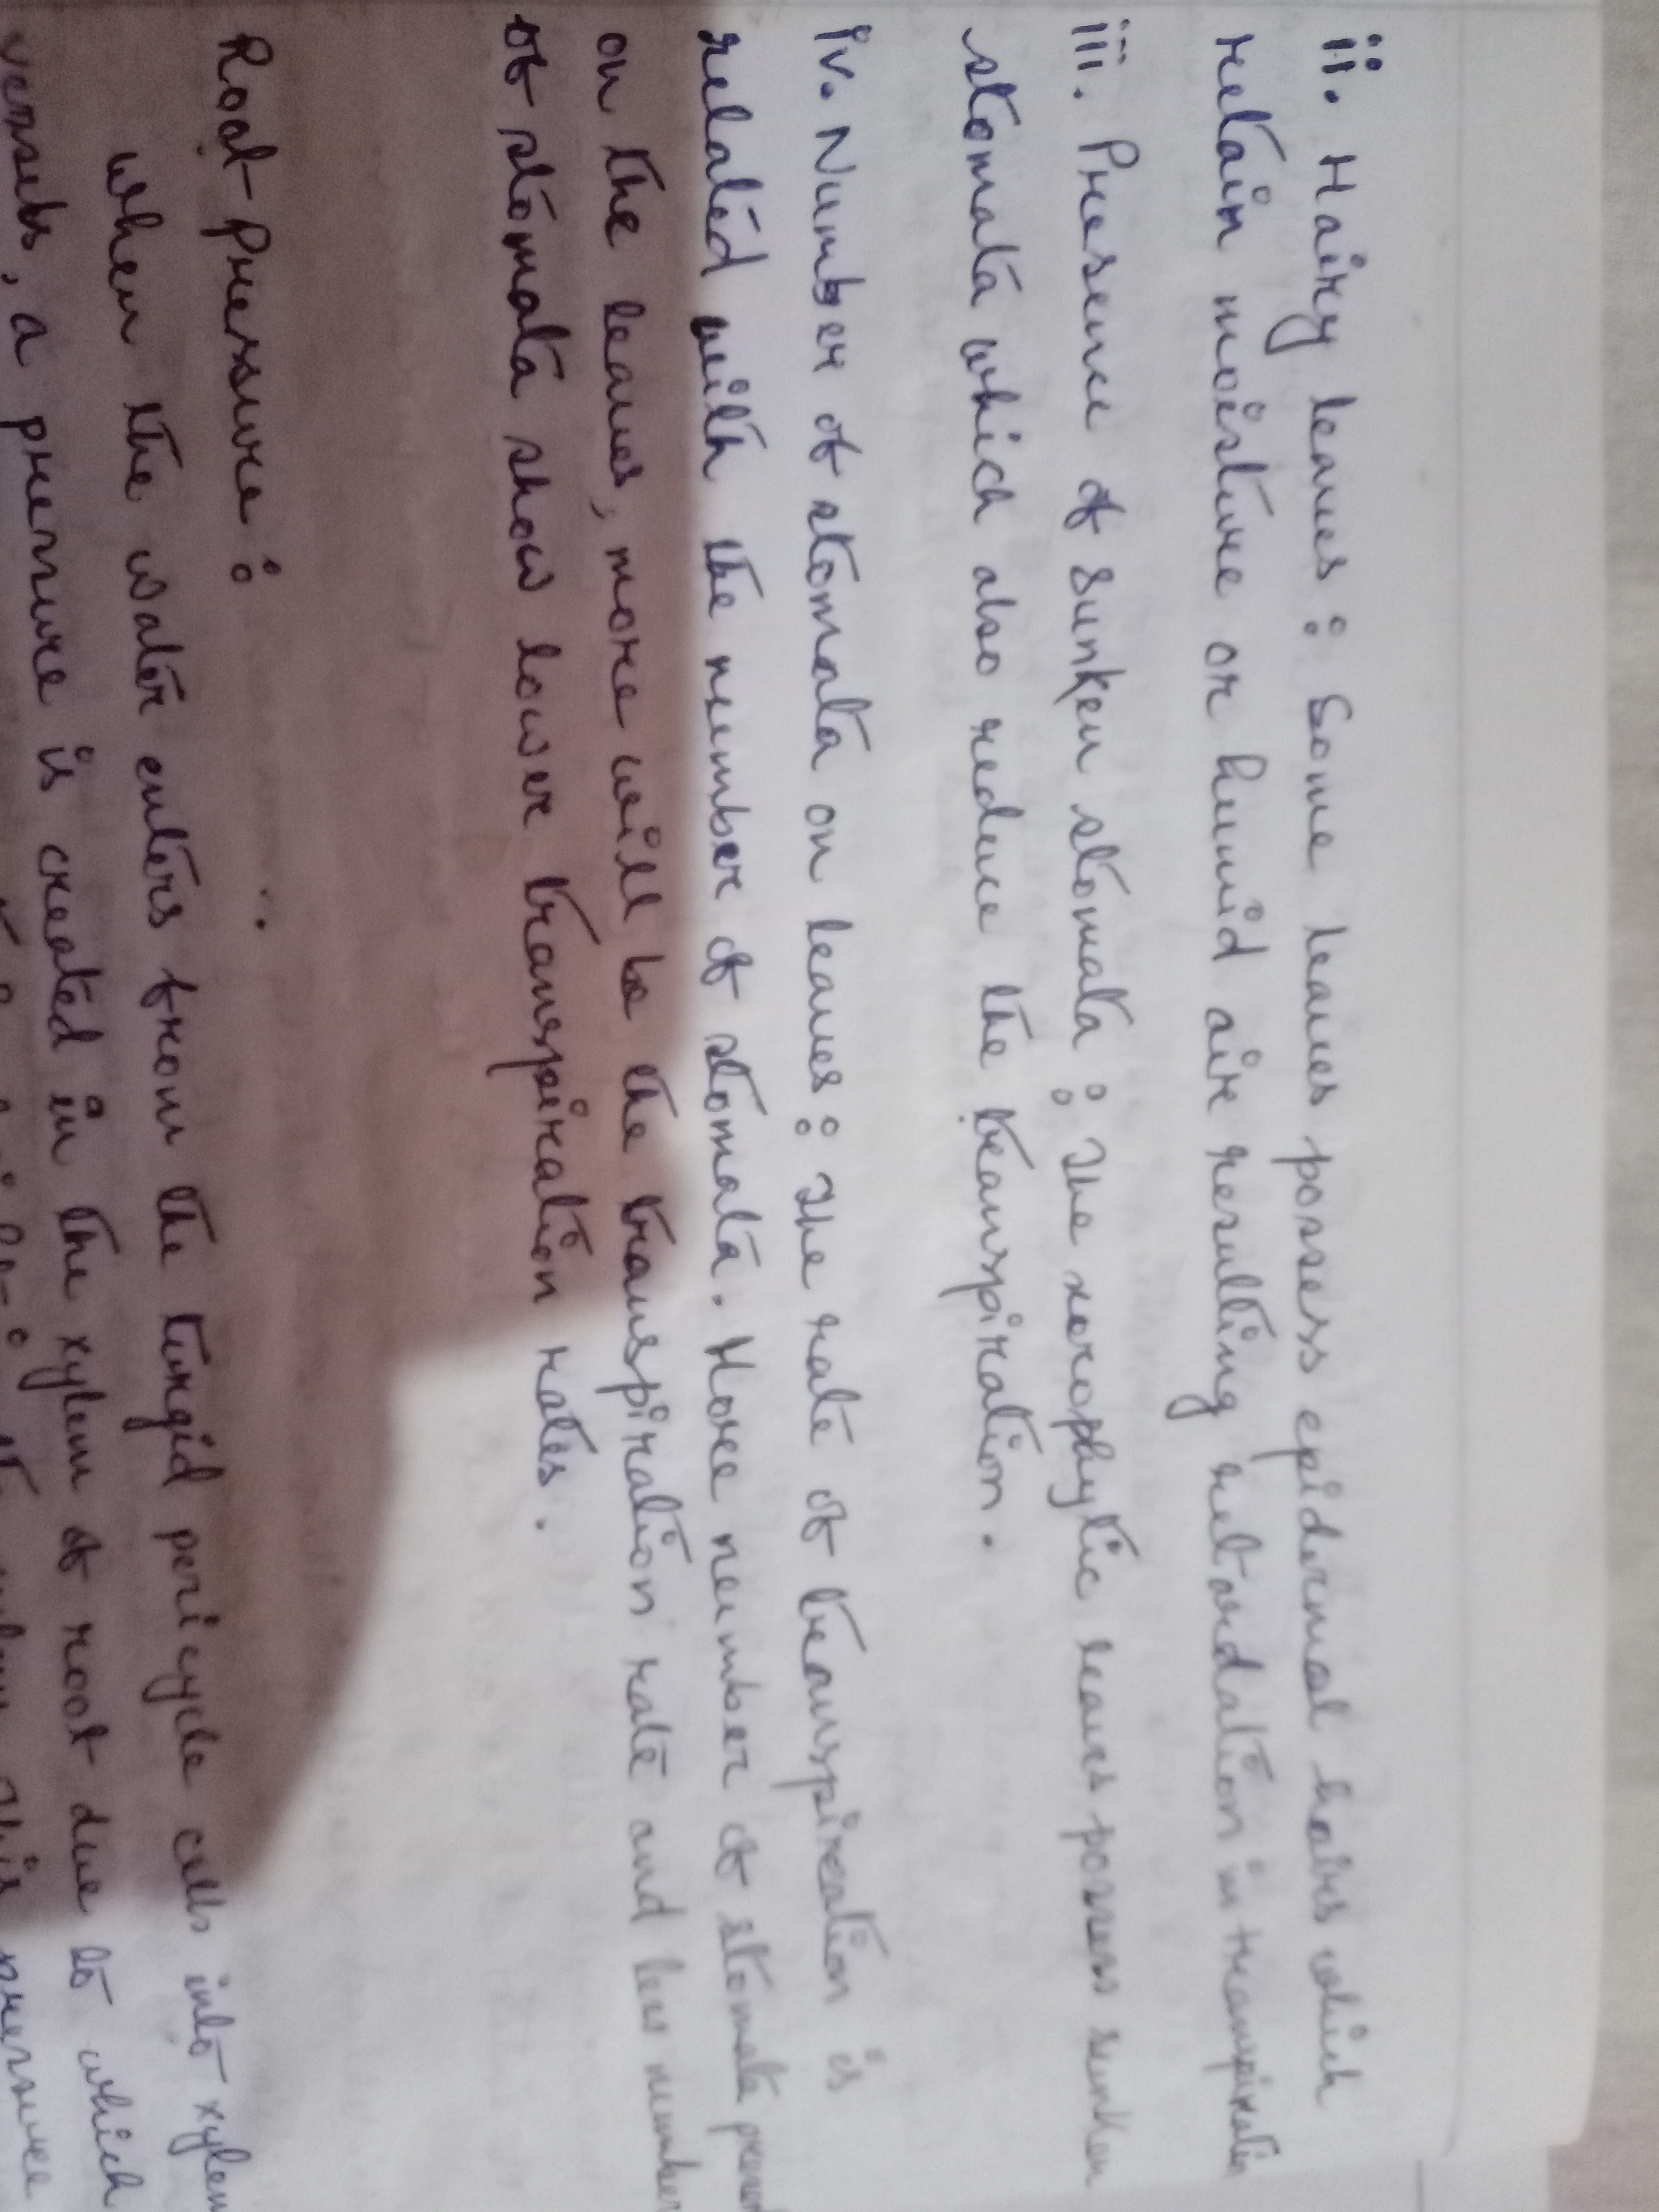 ii. Hairy leaves : Some leaves possess epidermal hairs which
retain moisture or humid air resulting retardation in transpiration
iii. Presence of sunken stomata : The xerophytic leaves possess sunken
stomata which also reduce the transpiration.
iv. Number of stomata on leaves : The rate of transpiration is
related with the number of stomata. More number of stomata present
on the leaves, more will be the transpiration rate and less number
of stomata show lower transpiration rates.
Root-Pressure :
When the water enters from the turgid pericycle cells into xylem
vessels, a pressure is created in the xylem of root due to which